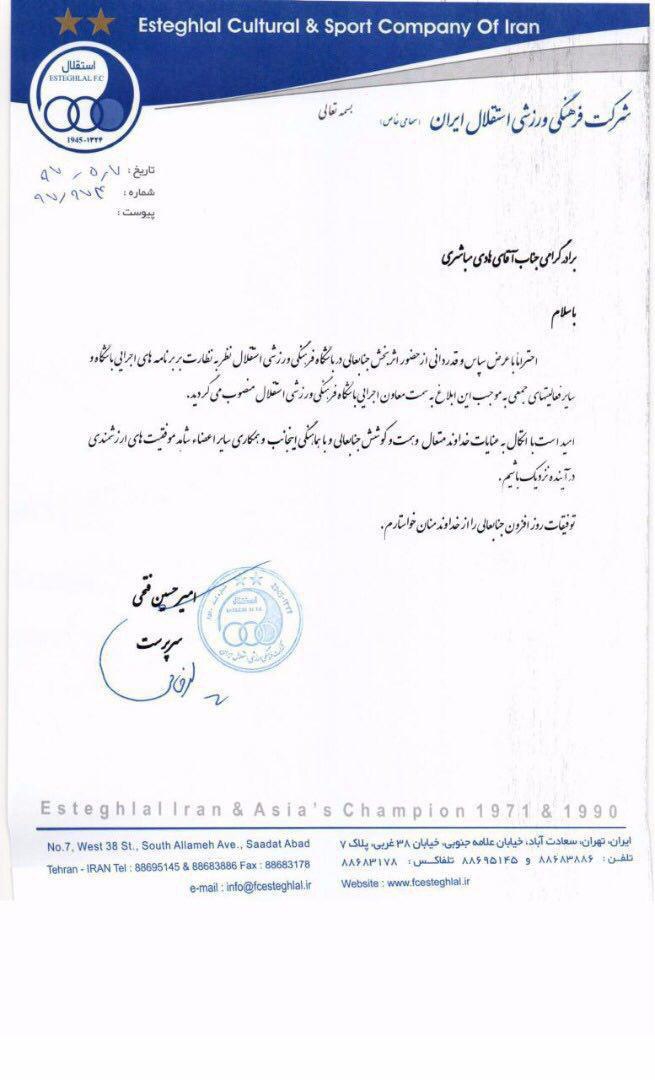 Esteghlal Cultural & Sport Company Of Iran
استقلال
ESTEGHLAL F.C
1945-۱۳۲۴
شرکت فرهنگی ورزشی استقلال ایران (سهامی خاص)
بسمه تعالی
تاریخ : ۹۷٫۵٫۷
شماره : ۹۷/۹۷۴
پیوست :
برادر گرامی جناب آقای هادی مباشری
باسلام
احتراماً با عرض سپاس و قدردانی از حضور اثربخش جنابعالی در باشگاه فرهنگی ورزشی استقلال نظر به نظارت بر برنامه های اجرایی باشگاه و
سایر فعالیتهای جمعی به موجب این ابلاغ به سمت معاون اجرایی باشگاه فرهنگی ورزشی استقلال منصوب می گردید.
امید است با اتکال به عنایات خداوند متعال و همت و کوشش جنابعالی و با هماهنگی اینجانب و همکاری سایر اعضاء شاهد موفقیت های ارزشمندی
در آینده نزدیک باشیم.
توفیقات روز افزون جنابعالی را از خداوند منان خواستارم.
امیرحسین فتحی
سرپرست
استقلال
ESTEGHLAL F.C
شرکت فرهنگی ورزشی استقلال ایران
Esteghlal Iran & Asia's Champion 1971 & 1990
No.7, West 38 St., South Allameh Ave., Saadat Abad
Tehran - IRAN Tel : 88695145 & 88683886 Fax : 88683178
e-mail : info@fcesteghlal.ir
ایران، تهران، سعادت آباد، خیابان علامه جنوبی، خیابان ۳۸ غربی، پلاک ۷
تلفن : ۸۸۶۸۳۸۸۶ و ۸۸۶۹۵۱۴۵ تلفاکس : ۸۸۶۸۳۱۷۸
Website : www.fcesteghlal.ir